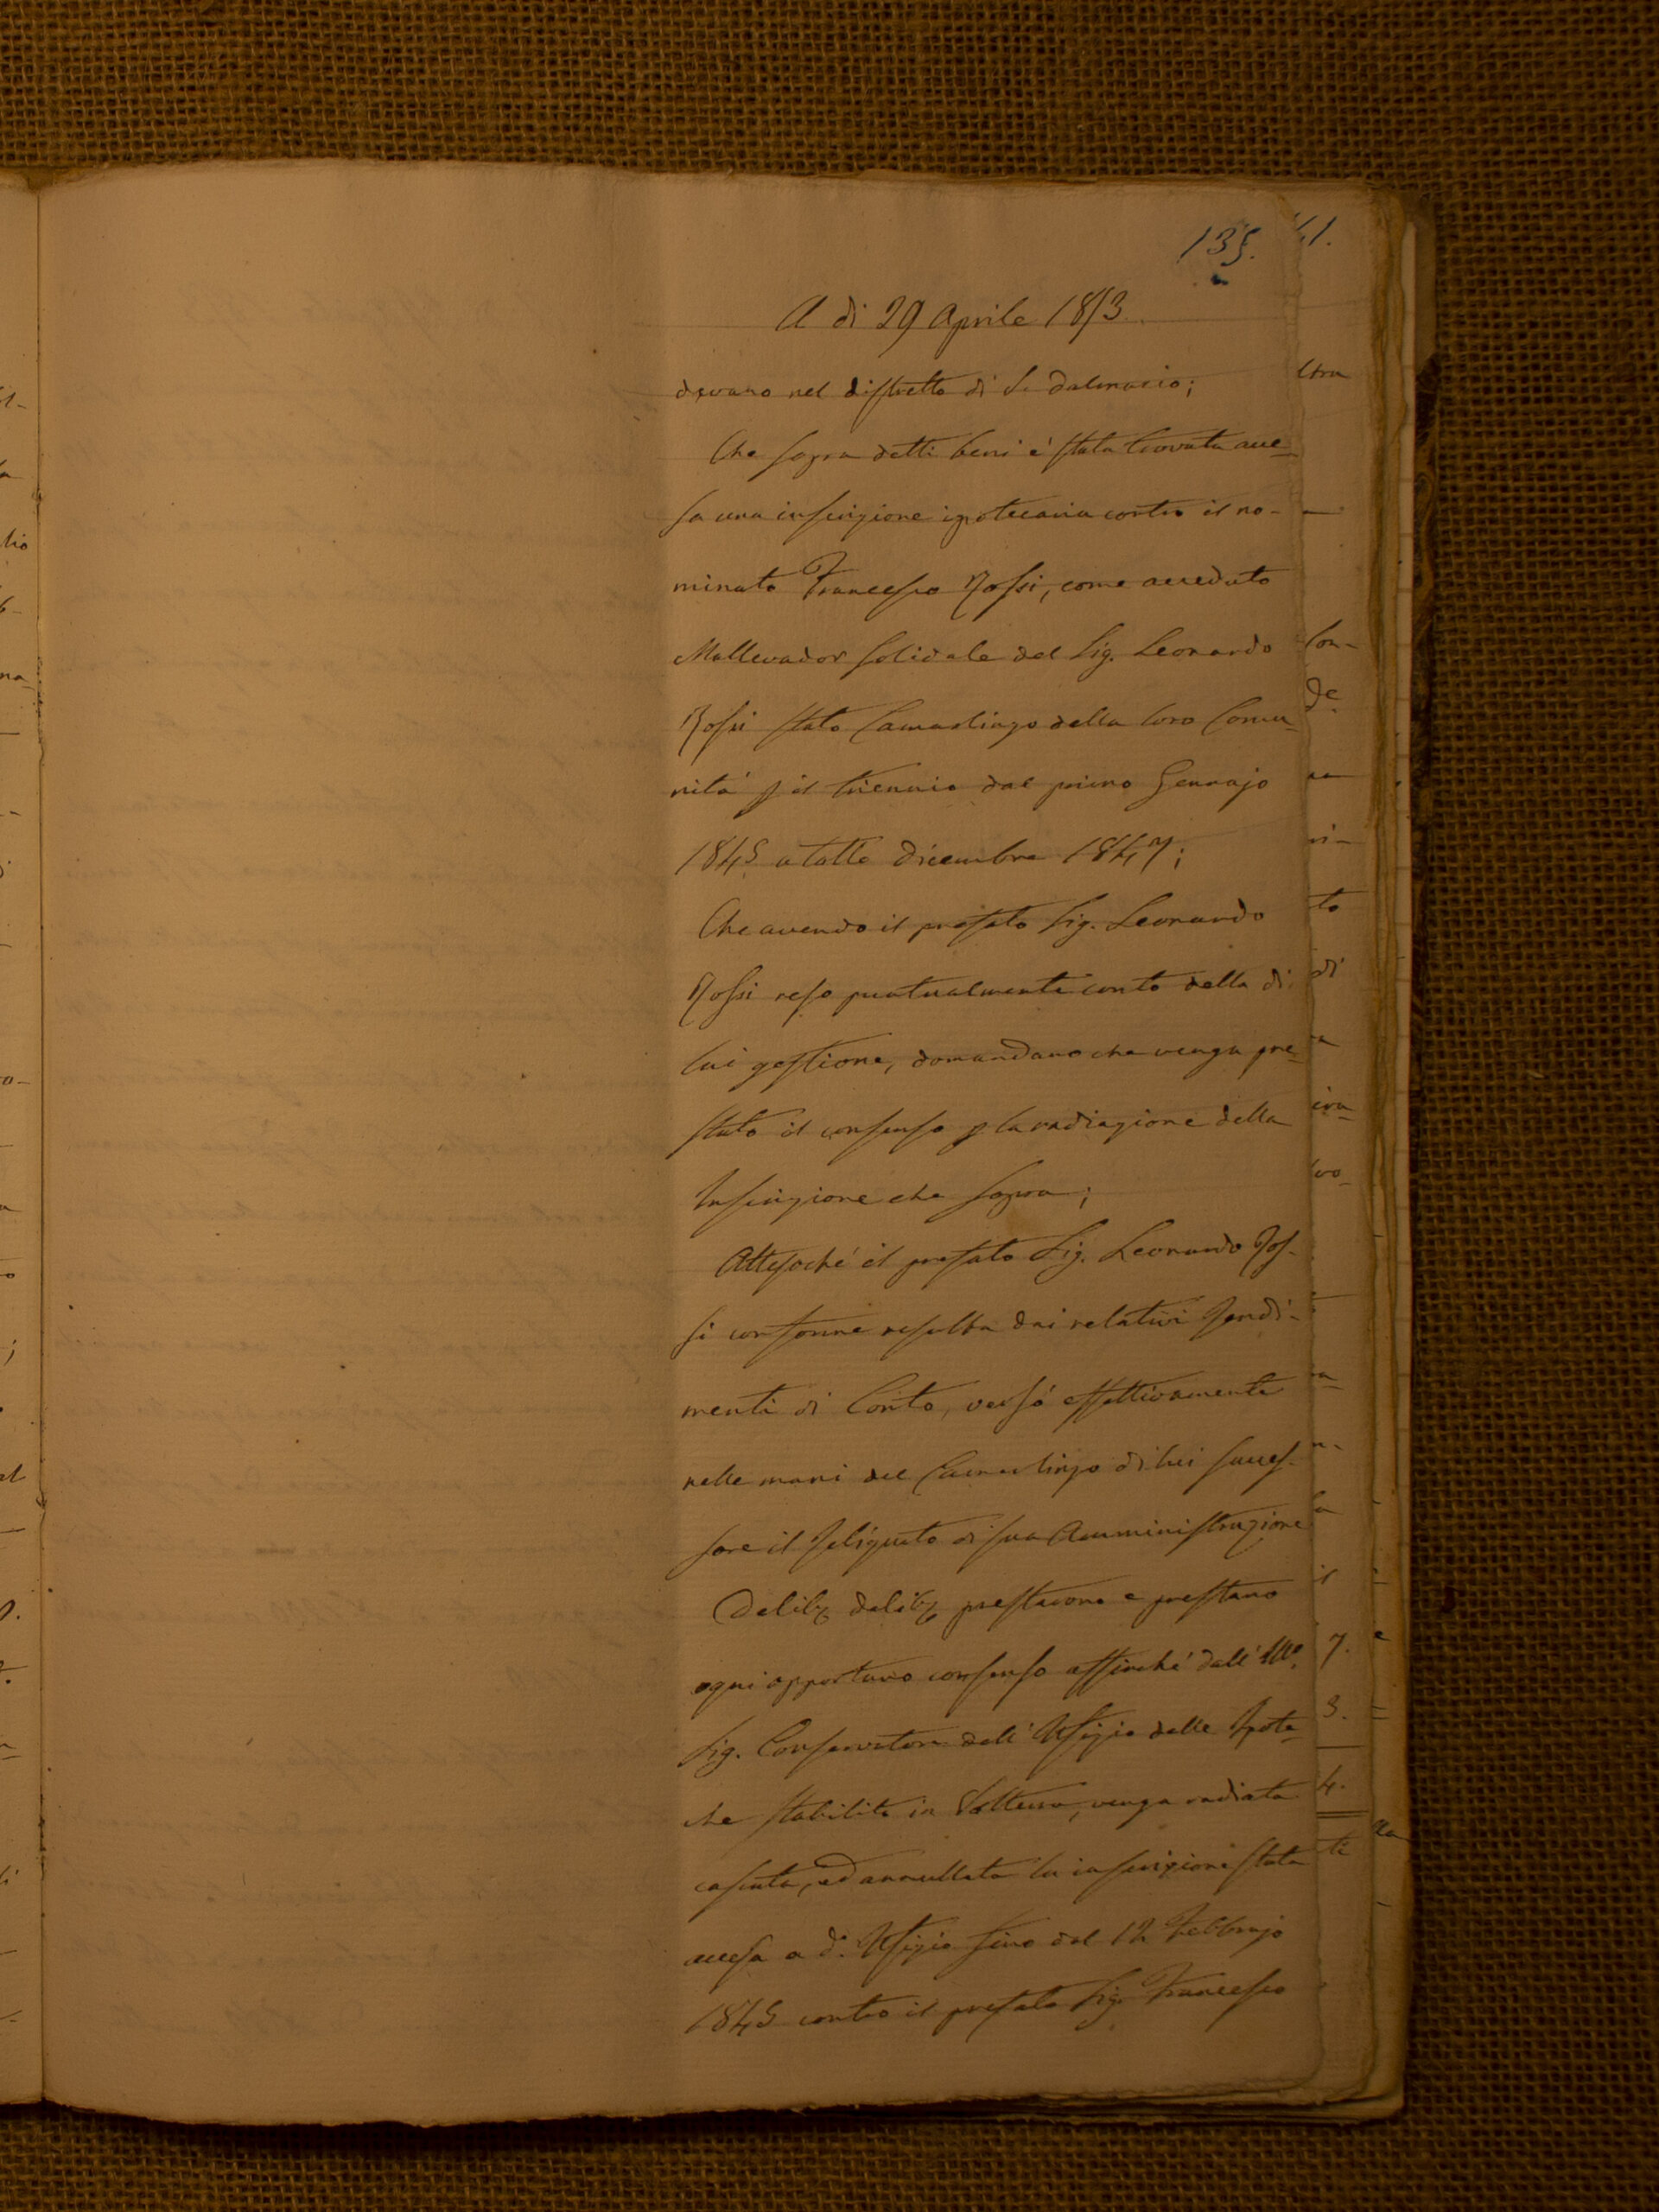 135.
A dì 29 Aprile 1853.
devano nel distretto di S. Dalmazio;
Che sopra detti beni è stata trovata acce=
sa una inscrizione ipotecaria contro il no-
minato Francesco Rossi, come acceduto
Mallevador solidale del Sig. Leonardo
Rossi stato Camarlingo della loro Comu=
nità p il triennio dal primo Gennajo
1845 a tutto Dicembre 1847;
Che avendo il prefato Sig. Leonardo
Rossi reso puntualmente conto della di
lui gestione, domandano che venga pre=
stato il consenso p la radiazione della
Inscrizione che sopra;
Attesoché il prefato Sig. Leonardo Ros-
si conforme resulta dai relativi Rendi-
menti di Conto, versò effettivamente
nelle mani del Camarlingo di lui succes-
sore il Reliquato di sua Amministrazione
Delib. delib. prestarono e prestano
ogni opportuno consenso affinché dall' Ill.
Sig. Conservatore dell' Ufizio delle Ipote=
che stabilito in Volterra, venga radiata
cassata, ed annullata la inscrizione stata
accesa a d. Ufizio fino dal 12 Febbrajo
1845 contro il prefato Sig. Francesco